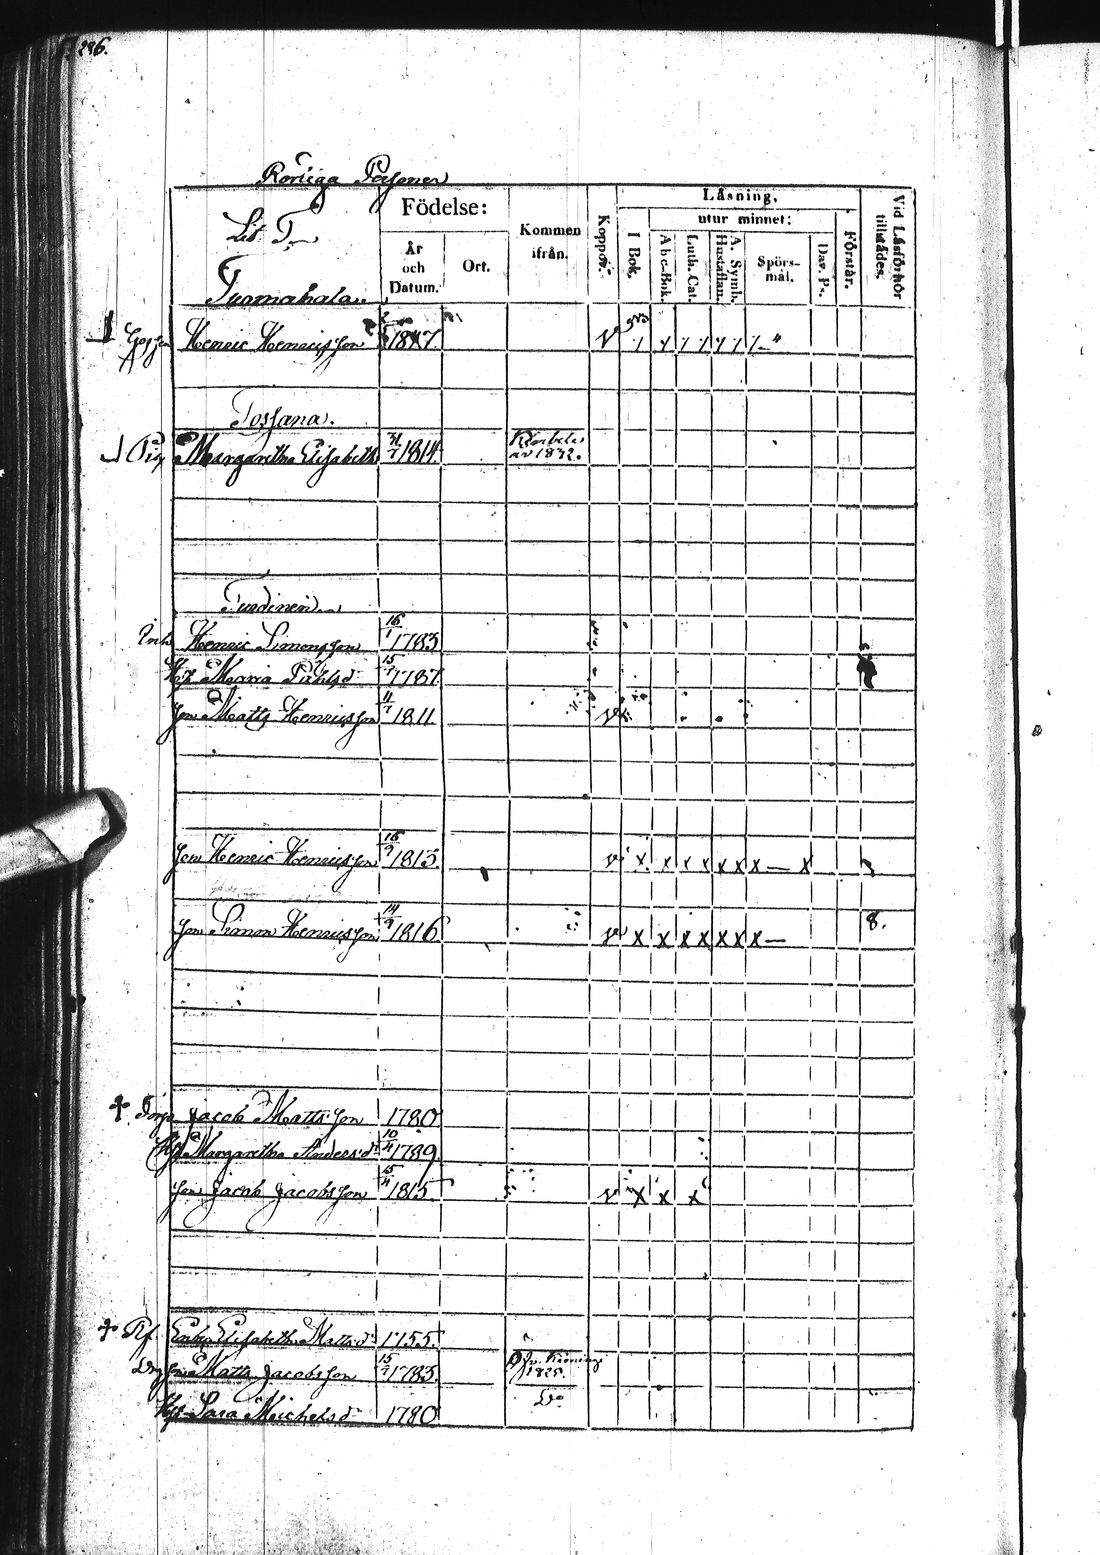 296.
Rörliga Personer
Lit T.
Tuomahala.
Födelse:
År och Datum.
Ort.
Kommen ifrån.
Koppor.
Läsning,
utur minnet:
I Bok.
Abc-Bok.
Luth. Cat.
A. Symb. Hustaflan.
Spörs-mål.
Dav. Ps.
Förstår.
Vid Läsförhör tillstädes.
Henric Henricsson 1817. v
Tossana.
Pig Margaretha Elisabeth 31/7 1814.
Turdinen
Inh Henric Simonsson 16/1 1783
Hu Maria Påhlsd 15/7 1787
Son Matts Henricsson 11/7 1811 v
Son Henric Henricsson 16/9 1813. v x x x x x x x — x
Son Simon Henricsson 14/9 1816 v x x x x x x x — 8.
Jacob Mattsson 1780
Hu Margaretha Andersd 10/11 1789.
Son Jacob Jacobsson 15/11 1815 v x x x
Enka Elisabeth Mattsd 1755.
Son Matts Jacobsson 15/9 1783. 1825.
Hu Sara Michelsd 1780 Do